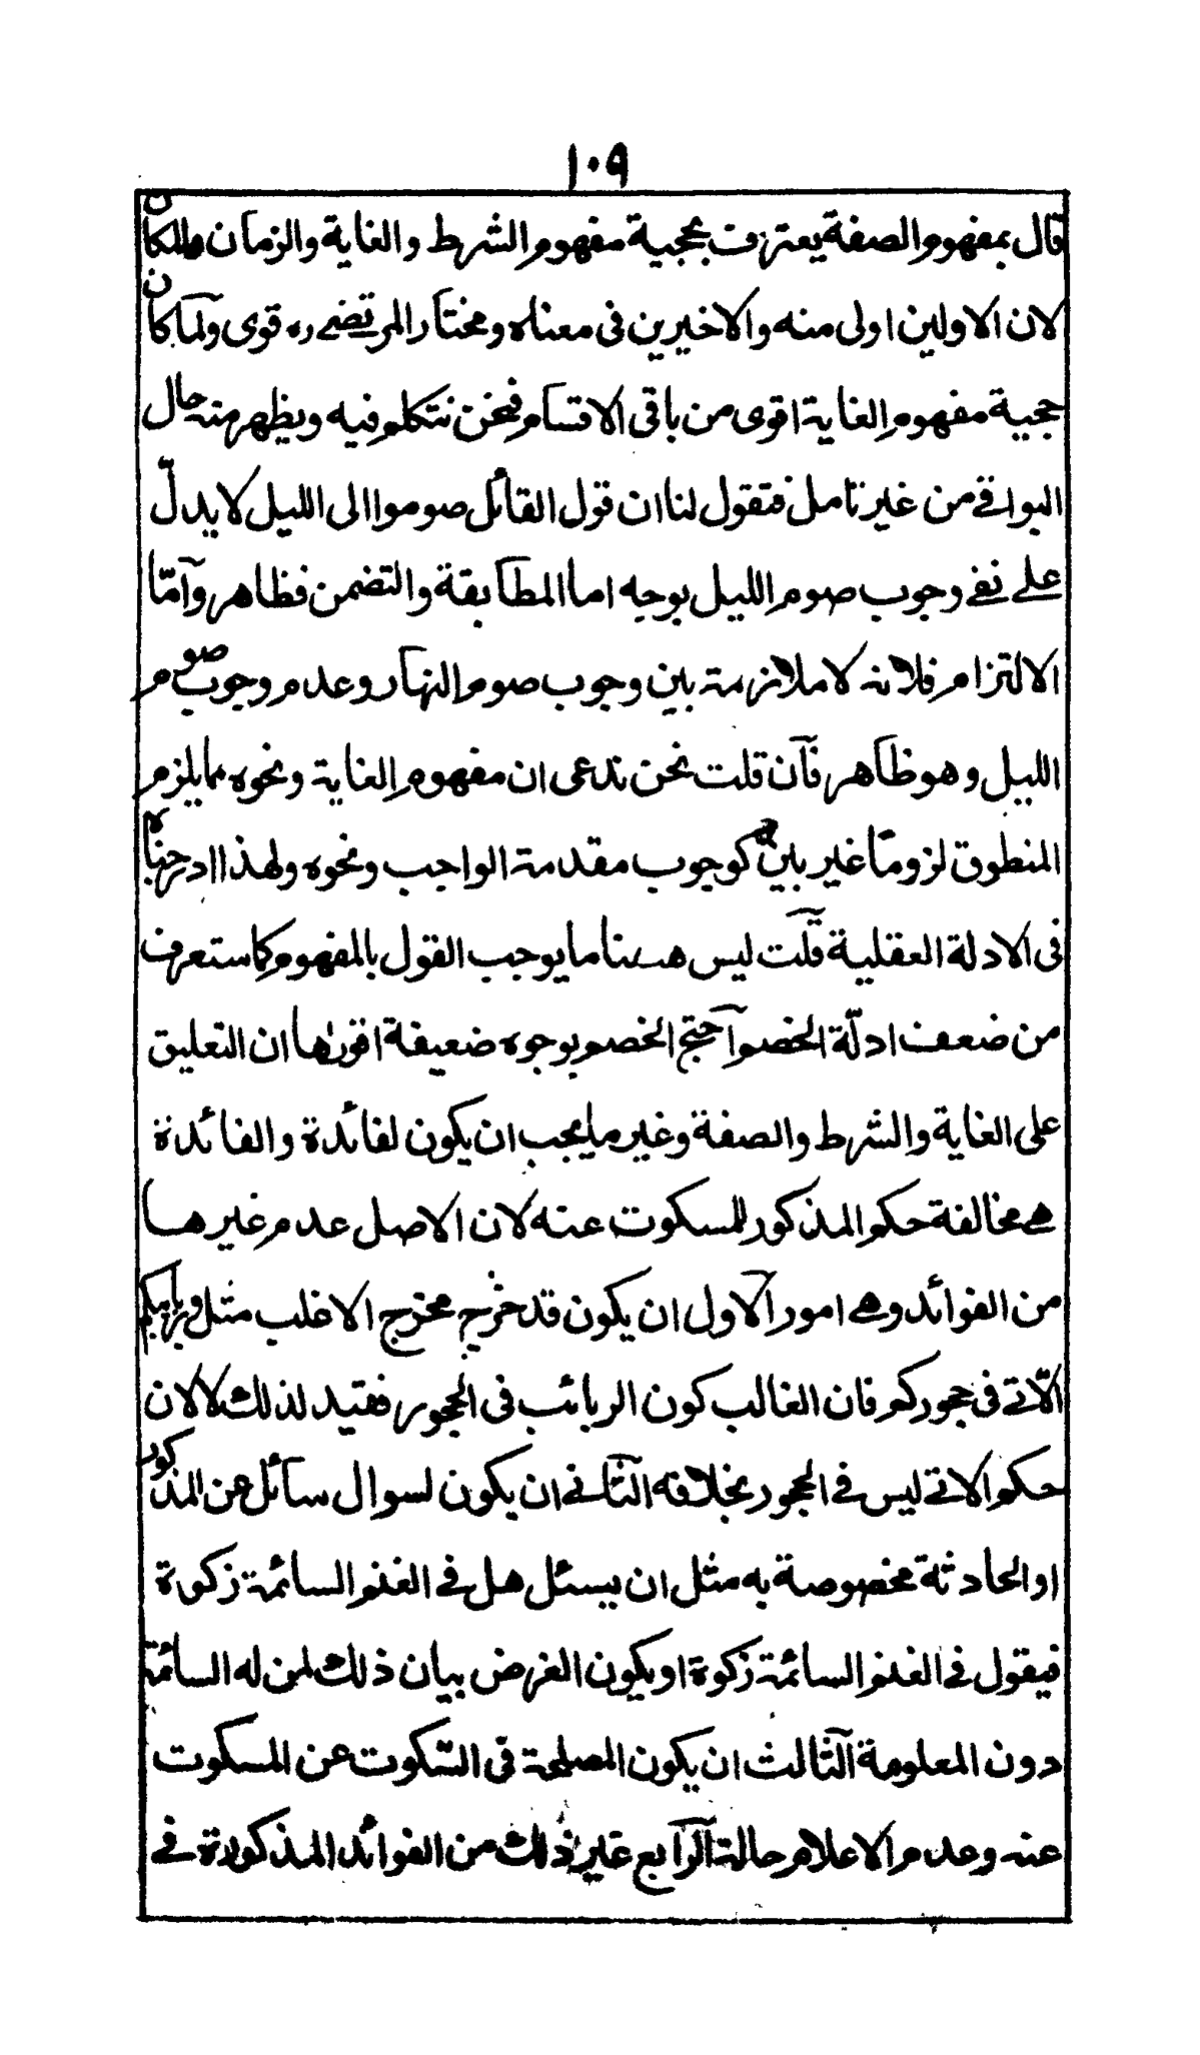 ١٠٩
قال بمفهوم الصفة يعترف بحجية مفهوم الشرط والغاية والزمان والمكان
لان الاولين اولى منه والاخيرين فى معناه ومختار المرتضى ره قوى ولما كان
حجية مفهوم الغاية اقوى من باقى الاقسام فنحن نتكلم فيه ويظهر منه حال
البواقى من غير تامل فنقول لنا ان قول القائل صوموا الى الليل لا يدلّ
على نفى وجوب صوم الليل بوجه اما المطابقة والتضمن فظاهر وامّا
الالتزام فلانه لا ملازمة بين وجوب صوم النهار وعدم وجوب صوم
الليل وهو ظاهر فان قلت نحن ندعى ان مفهوم الغاية ونحوه مما يلزم
المنطوق لزوما غير بين كوجوب مقدمة الواجب ونحوه ولهذا ادرجناه
فى الادلة العقلية قلت ليس ههنا ما يوجب القول بالمفهوم كما ستعرف
من ضعف ادلّة الخصم احتج الخصم بوجوه ضعيفة اقوٰها ان التعليق
على الغاية والشرط والصفة وغيرها يجب ان يكون لفائدة والفائدة
هى مخالفة حكم المذكور للمسكوت عنه لان الاصل عدم غيرها
من الفوائد وهى امور الاول ان يكون قد خرج مخرج الاغلب مثل وربائبكم
الّاتى فى حجوركم فان الغالب كون الربائب فى الحجور فقيد لذلك لا لان
حكم الاتى ليس فى الحجور بخلافه الثانى ان يكون لسوال سائل عن المذكور
او الحادثة مخصوصة به مثل ان يسئل هل فى الغنم السائمة زكوة
فيقول فى الغنم السائمة زكوة او يكون الغرض بيان ذلك لمن له السائمة
دون المعلومة الثالث ان يكون المصلحة فى السّكوت عن المسكوت
عنه وعدم الاعلام حالة الرابع غير ذلك من الفوائد المذكورة فى